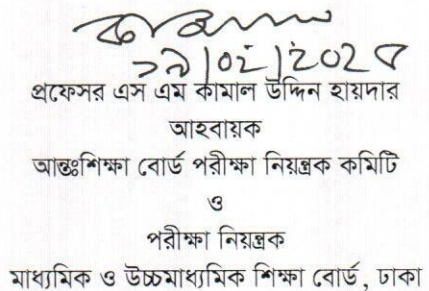 ১৯/০২/২০২৫
প্রফেসর এস এম কামাল উদ্দিন হায়দার
আহবায়ক
আন্তঃশিক্ষা বোর্ড পরীক্ষা নিয়ন্ত্রক কমিটি
ও
পরীক্ষা নিয়ন্ত্রক
মাধ্যমিক ও উচ্চমাধ্যমিক শিক্ষা বোর্ড, ঢাকা